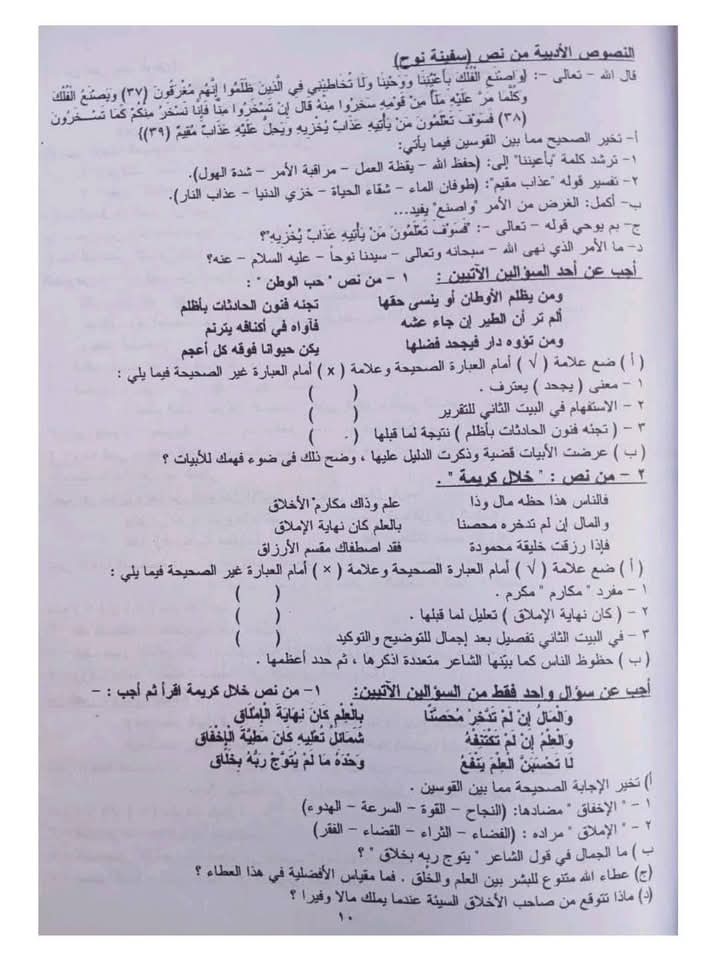 النصوص الأدبية من نص (سفينة نوح)
قال الله – تعالى –: {وَاصْنَعِ الْفُلْكَ بِأَعْيُنِنَا وَوَحْيِنَا وَلَا تُخَاطِبْنِي فِي الَّذِينَ ظَلَمُوا إِنَّهُم مُّغْرَقُونَ (٣٧) وَيَصْنَعُ الْفُلْكَ
وَكُلَّمَا مَرَّ عَلَيْهِ مَلَأٌ مِّن قَوْمِهِ سَخِرُوا مِنْهُ قَالَ إِن تَسْخَرُوا مِنَّا فَإِنَّا نَسْخَرُ مِنكُمْ كَمَا تَسْخَرُونَ
(٣٨) فَسَوْفَ تَعْلَمُونَ مَن يَأْتِيهِ عَذَابٌ يُخْزِيهِ وَيَحِلُّ عَلَيْهِ عَذَابٌ مُّقِيمٌ (٣٩)}
أ– تخير الصحيح مما بين القوسين فيما يأتي:
١– ترشد كلمة "بأعيننا" إلى: (حفظ الله – يقظة العمل – مراقبة الأمر – شدة الهول).
٢– تفسير قوله "عذاب مقيم": (طوفان الماء – شقاء الحياة – خزي الدنيا – عذاب النار).
ب– أكمل: الغرض من الأمر "واصنع" يفيد...
ج– بم يوحي قوله – تعالى –: "فَسَوْفَ تَعْلَمُونَ مَن يَأْتِيهِ عَذَابٌ يُخْزِيهِ"؟
د– ما الأمر الذي نهى الله – سبحانه وتعالى – سيدنا نوحاً – عليه السلام – عنه؟
أجب عن أحد السؤالين الآتيين : ١ – من نص " حب الوطن " :
ومن يظلم الأوطان أو ينسى حقها تجئه فنون الحادثات بأظلم
ألم تر أن الطير إن جاء عشه فآواه في أكنافه يترنم
ومن تؤوه دار فيجحد فضلها يكن حيوانا فوقه كل أعجم
( أ ) ضع علامة ( √ ) أمام العبارة الصحيحة وعلامة ( x ) أمام العبارة غير الصحيحة فيما يلي :
١ – معنى ( يجحد ) يعترف . ( )
٢ – الاستفهام في البيت الثاني للتقرير ( )
٣ – ( تجئه فنون الحادثات بأظلم ) نتيجة لما قبلها ( )
( ب ) عرضت الأبيات قضية وذكرت الدليل عليها ، وضح ذلك فى ضوء فهمك للأبيات ؟
٢ – من نص : " خلال كريمة " .
فالناس هذا حظه مال وذا علم وذاك مكارم الأخلاق
والمال إن لم تدخره محصنا بالعلم كان نهاية الإملاق
فإذا رزقت خليقة محمودة فقد اصطفاك مقسم الأرزاق
( أ ) ضع علامة ( √ ) أمام العبارة الصحيحة وعلامة ( × ) أمام العبارة غير الصحيحة فيما يلي :
١ – مفرد " مكارم " مكرم . ( )
٢ – ( كان نهاية الإملاق ) تعليل لما قبلها . ( )
٣ – في البيت الثاني تفصيل بعد إجمال للتوضيح والتوكيد ( )
( ب ) حظوظ الناس كما بيّنها الشاعر متعددة اذكرها ، ثم حدد أعظمها .
أجب عن سؤال واحد فقط من السؤالين الآتيين: ١– من نص خلال كريمة اقرأ ثم أجب : –
وَالمَالُ إِنْ لَمْ تَدَّخِرْهُ مُحَصَّنًا بِالعِلْمِ كَانَ نِهَايَةَ الْإِمْلَاقِ
وَالْعِلْمُ إِنْ لَمْ تَكْتَنِفْهُ شَمَائِلٌ تُعْلِيهِ كَانَ مَطِيَّةَ الْإِخْفَاقِ
لَا تَحْسَبَنَّ العِلْمَ يَنْفَعُ وَحْدَهُ مَا لَمْ يُتَوَّجْ رَبُّهُ بِخَلَاقِ
أ) تخير الإجابة الصحيحة مما بين القوسين .
١ – " الإخفاق " مضادها: (النجاح – القوة – السرعة – الهدوء)
٢ – " الإملاق " مراده : (الفضاء – الثراء – القضاء – الفقر)
ب ) ما الجمال في قول الشاعر " يتوج ربه بخلاق " ؟
(ج) عطاء الله متنوع للبشر بين العلم والخُلق . فما مقياس الأفضلية في هذا العطاء ؟
(د) ماذا تتوقع من صاحب الأخلاق السيئة عندما يملك مالا وفيرا ؟
١٠